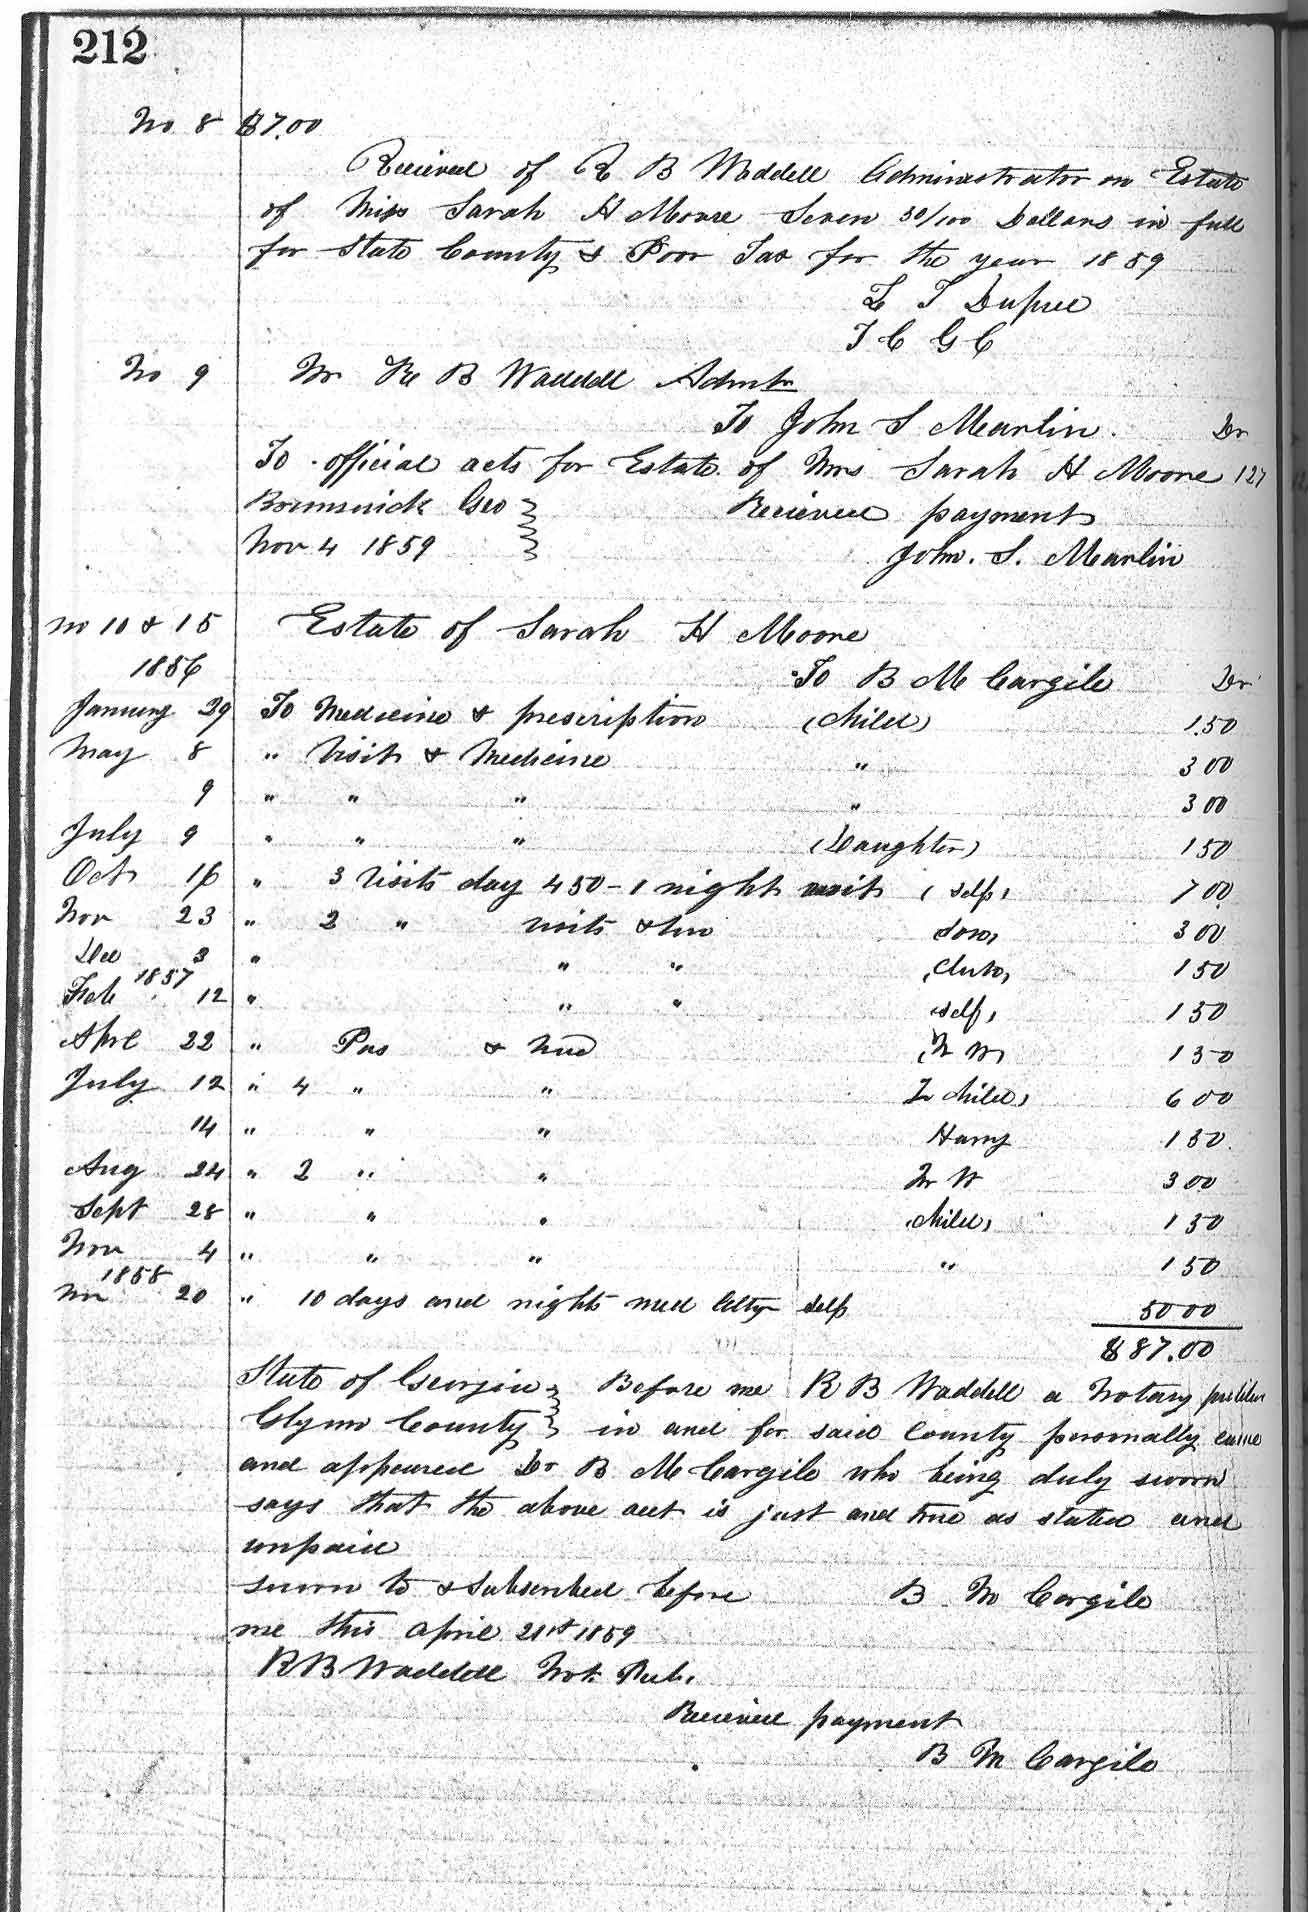 212
No 8 $7.00
Recieved of R B Waddell Administrator on Estate
of Miss Sarah H Moore Seven 50/100 Dollars in full
for State County & Poor Tax for the year 1859
L T Dupree
T C G C
No 9 Mr R B Waddell Admtr
To John S Marlin. Dr
To official acts for Estate of Mrs Sarah H Moore 127
Brunswick Geo Recieved payment
Nov 4 1859 John. S. Marlin
No 10 & 15 Estate of Sarah H Moore
1856 To B M Cargile Dr
January 29 To Medicine & prescription (child) 1.50
May 8 " Visit & Medicine " 3 00
9 " " " " 3 00
July 9 " " " (Daughter) 1 50
Oct 16 " 3 Visits day 4 50 - 1 night visit (self) 7 00
Nov 23 " 2 " visits & 3 00
Dec 3 " " " 1 50
1857
Feb 12 " " " self, 1 50
Aprl 22 " Pres & med 1 50
July 12 " 4 " " child, 6 00
14 " " " Harry 1 50
Aug 24 " 2 " " W 3 00
Sept 28 " " " (child, 1 50
Nov 4 " " " " 1 50
1858
Nov 20 " 10 days and nights med self 50 00
$87.00
State of Georgia Before me R B Waddell a Notary publice
Glynn County in and for said County personally came
and appeared Dr B M Cargile who being duly sworn
says that the above act is just and true as stated and
unpaid
Sworn to & Subscribed before B M Cargile
me this April 21st 1859
R B Waddell Not. Pub.
Recieved payment
B M Cargile